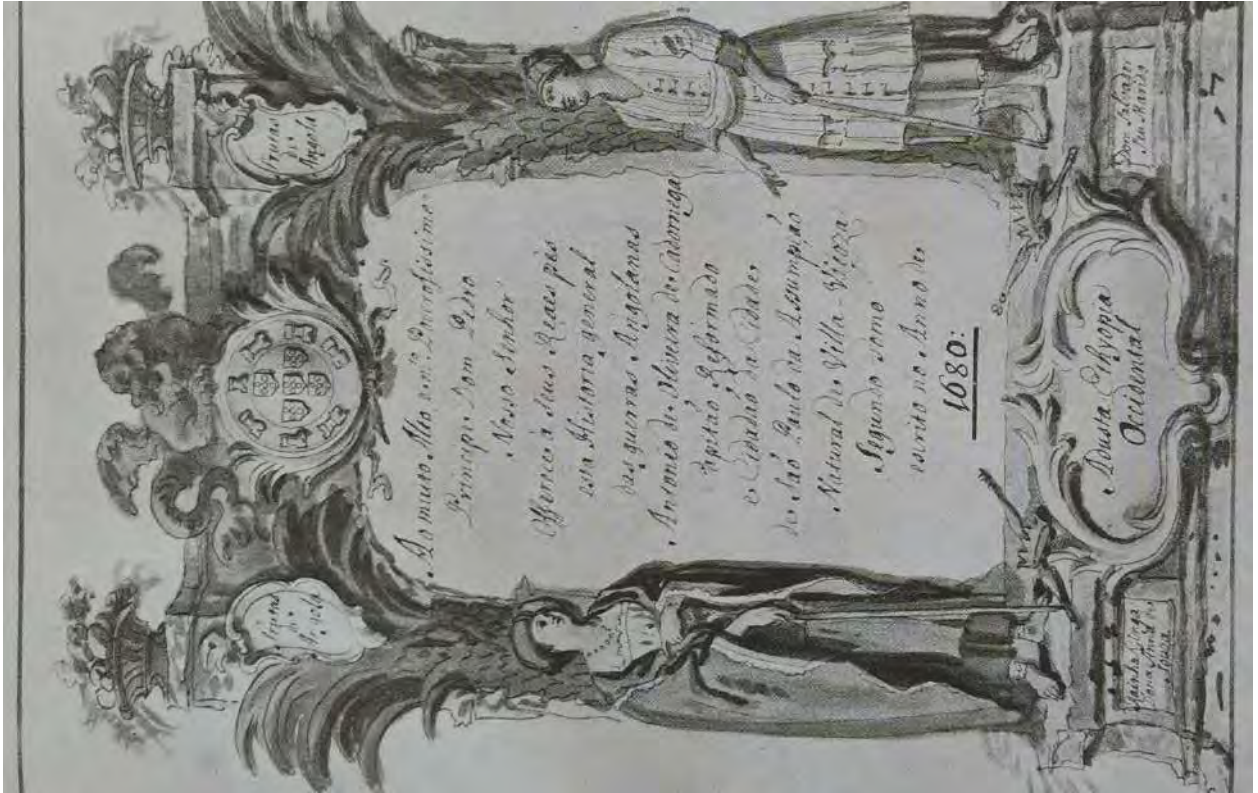 Frutas
de
Angola
Frutas
de
Angola
Ao muito Alto e m.to Poderosissimo
Principe Dom Pedro
Nosso Senhor
Offerece à seus Reaes pés
esta Historia general
das guerras Angolanas
Antonio de Oliveira de Cadornega
Capitaõ Reformado
e Cidadaõ da Cidade
de Saõ Paulo da Assumpçaõ
Natural de Villa-Viçoza
Segundo tomo
escrito no Anno de
1680:
Rainha Ginga
Dona Anna de
Souza
Adusta Ethyopia
Occidental
Dom Salvador
seu Marido